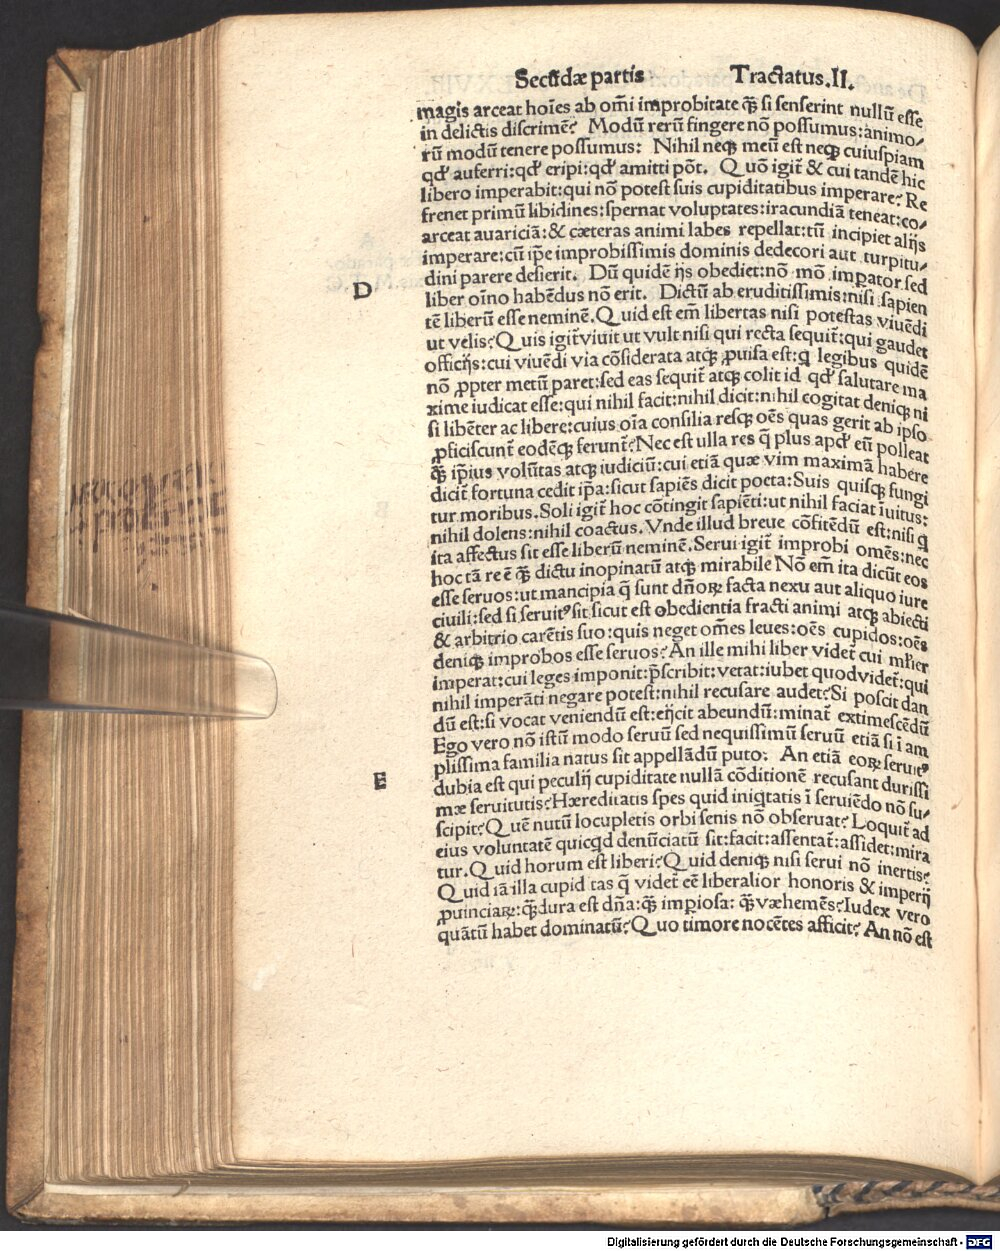 Secūdæ partis Tractatus.II.
magis arceat hoīes ab om̄i improbitate q̄ꝫ si senserint nullū esse
in delictis discrimē? Modū rerū fingere nō possumus:animo/
rū modū tenere possumus: Nihil neqꝫ meū est neqꝫ cuiuspiam
qd' auferri:qd' eripi:qd' amitti pōt. Quō igit̄ & cui tandē hic
libero imperabit:qui nō potest suis cupiditatibus imperare? Re
frenet primū libidines:spernat voluptates:iracundiā teneat:co/
arceat auariciā:& cæteras animi labes repellat:tū incipiet alijs
imperare:cū ip̄e improbissimis dominis dedecori aut turpitu/
dini parere desierit. Dū quidē ijs obediet:nō mō imꝑator sed
D
liber oīno habēdus nō erit. Dictū ab eruditissimis:nisi sapien
tē liberū esse neminē.Quid est em̄ libertas nisi potestas viuēdi
ut velis?Quis igit̄ viuit ut vult nisi qui recta sequit̄:qui gaudet
officijs:cui viuēdi via cōsiderata atqꝫ ꝓuisa est:q legibus quidē
nō ꝓpter metū paret:sed eas sequit̄ atqꝫ colit id qd' salutare ma
xime iudicat esse:qui nihil facit:nihil dicit:nihil cogitat deniqꝫ ni
si libēter ac libere:cuius oīa consilia resqꝫ oēs quas gerit ab ipso
ꝓficiscunt̄ eodēqꝫ ferunt̄?Nec est ulla res q̄ plus apd' eū polleat
q̄ꝫ ip̄ius volūtas atqꝫ iudiciū:cui etiā quæ vim maximā habere
dicit̄ fortuna cedit ip̄a:sicut sapiēs dicit poeta:Suis quisqꝫ fungi
tur moribus.Soli igit̄ hoc cōtingit sapiēti:ut nihil faciat īuitus:
nihil dolens:nihil coactus. Vnde illud breue cōfitēdū est:nisi q
ita affectus sit esse liberū neminē.Serui igit̄ improbi omēs:nec
hoc tā re ē q̄ꝫ dictu inopinatū atqꝫ mirabile Nō em̄ ita dicūt eos
esse seruos:ut mancipia q̄ sunt dn̄oꝝ facta nexu aut aliquo iure
ciuili:sed si seruitꝰ sit sicut est obedientia fracti animi atqꝫ abiecti
& arbitrio carētis suo:quis neget om̄es leues:oēs cupidos:oēs
deniqꝫ improbos esse seruos?An ille mihi liber videt̄ cui ml'ier
imperat:cui leges imponit:p̄scribit:vetat:iubet quod videt̄:qui
nihil imperāti negare potest:nihil recusare audet?Si poscit dan
dū est:si vocat veniendū est:eijcit abeundū:minat̄ extimescēdū
Ego vero nō istū modo seruū sed nequissimū seruū etiā si ī am
plissima familia natus sit appellādū puto: An etiā eoꝝ seruitꝰ
E
dubia est qui peculij cupiditate nullā cōditionē recusant durissi
mæ seruitutis?Hæreditatis spes quid iniqtatis ī seruiēdo nō su/
scipit?Quē nutū locupletis orbi senis nō obseruat? Loquit̄ ad
eius voluntatē quicqd denūciatū sit:facit:assentat̄:assidet:mira
tur.Quid horum est liberi?Quid deniqꝫ nisi serui nō inertis?
Quid iā illa cupid tas q̄ videt̄ cē liberalior honoris & imperij
ꝓuinciaꝝ:q̄ꝫ dura est dn̄a:q̄ꝫ imꝑiosa: q̄ꝫ væhemēs?Iudex vero
quātū habet dominatū?Quo timore nocētes afficit? An nō est
Digitalisierung gefördert durch die Deutsche Forschungsgemeinschaft - DFG